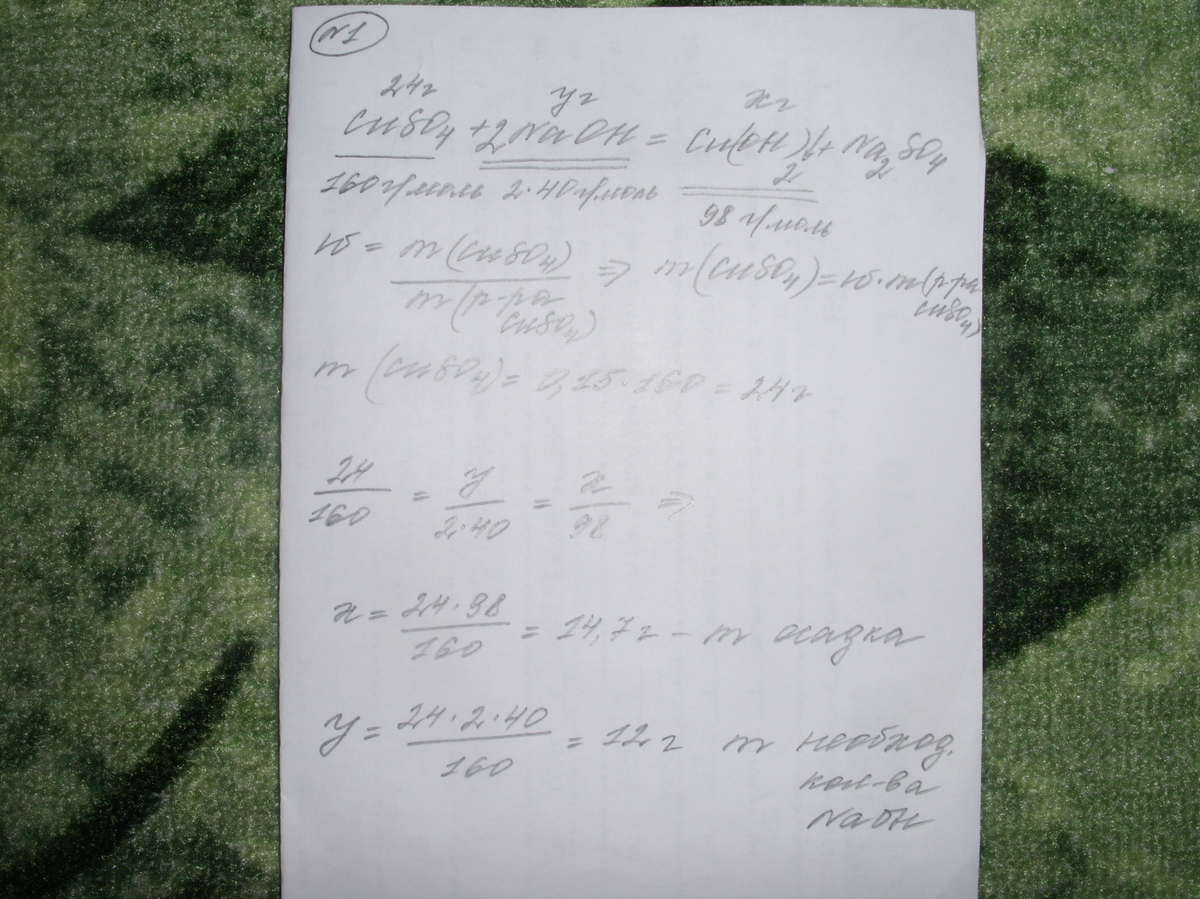 №1
24г уг хг
CuSO4 + 2NaOH = Cu(OH)2↓ + Na2SO4
160г/моль 2·40г/моль 98 г/моль
ω = m(CuSO4) / m(р-ра CuSO4) => m(CuSO4) = ω·m(р-ра CuSO4)
m(CuSO4) = 0,15·160 = 24г
24/160 = у/2·40 = х/98 =>
х = 24·98/160 = 14,7г – m осадка
у = 24·2·40/160 = 12г m необход.
кол-ва
NaOH